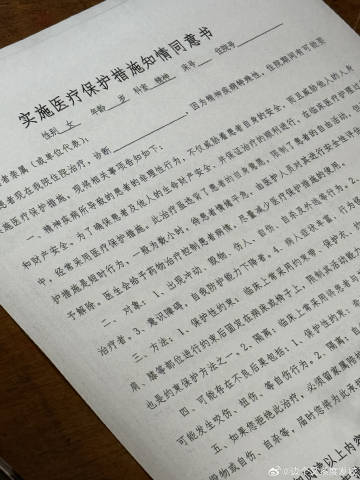 实施医疗保护措施知情同意书
性别 女 年龄 岁 科室 精神 床号 住院号
者家属（或单位代表）：
患者现在我院住院治疗，诊断 ，因为精神疾病特殊性，住院期间有可能采
取医疗保护措施，现将相关事项告知如下：
一、精神疾病所导致的患者的异常性行为，不仅威胁着患者自身的安全，而且威胁他人的人身
和财产安全。为了确保患者及他人的生命财产安全，并保证治疗的顺利进行，在临床医疗护理过
中，经常采用医疗保护措施。此治疗虽违背了患者的自身意愿，限制了患者的自由活动，
护措施是短时行为，一般为数小时，待患者情绪平息，由医护人员对其进行安全性评
予解除，医生会给予药物治疗控制患者病情，尽量减少医疗保护措施的使用。
二、对象：1、出现冲动、毁物、伤人、自伤、自杀及外逃等行为。2、
治疗者。3、意识障碍，自我防护能力下降者。4、病人症状丰富，行为
三、方法：1、保护性约束：临床上常采用约束带、保护衣、约
肩、膝等部位进行约束后固定在病床或椅子上，限制其活动能
也是约束保护方法之一。2、隔离：临床上常采用将患者与
四、可能存在不良后果包括：1、保护性约束：
可能发生咬伤、扭伤、等自伤行为。2、隔离：
五、如果您拒绝此治疗，必须留家属陪
毁物或自伤、自杀等，届时您将为此承
以上内容